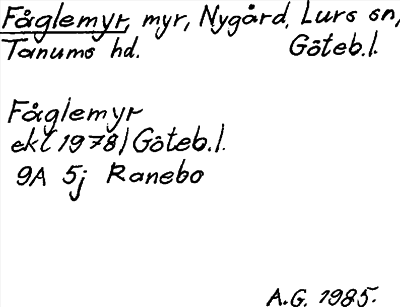 Fåglemyr, myr, Nygård, Lurs sn,
Tanums hd. Göteb.l.
Fåglemyr
ekl(1978) Göteb.l.
9A 5j Ranebo
A.G. 1985.